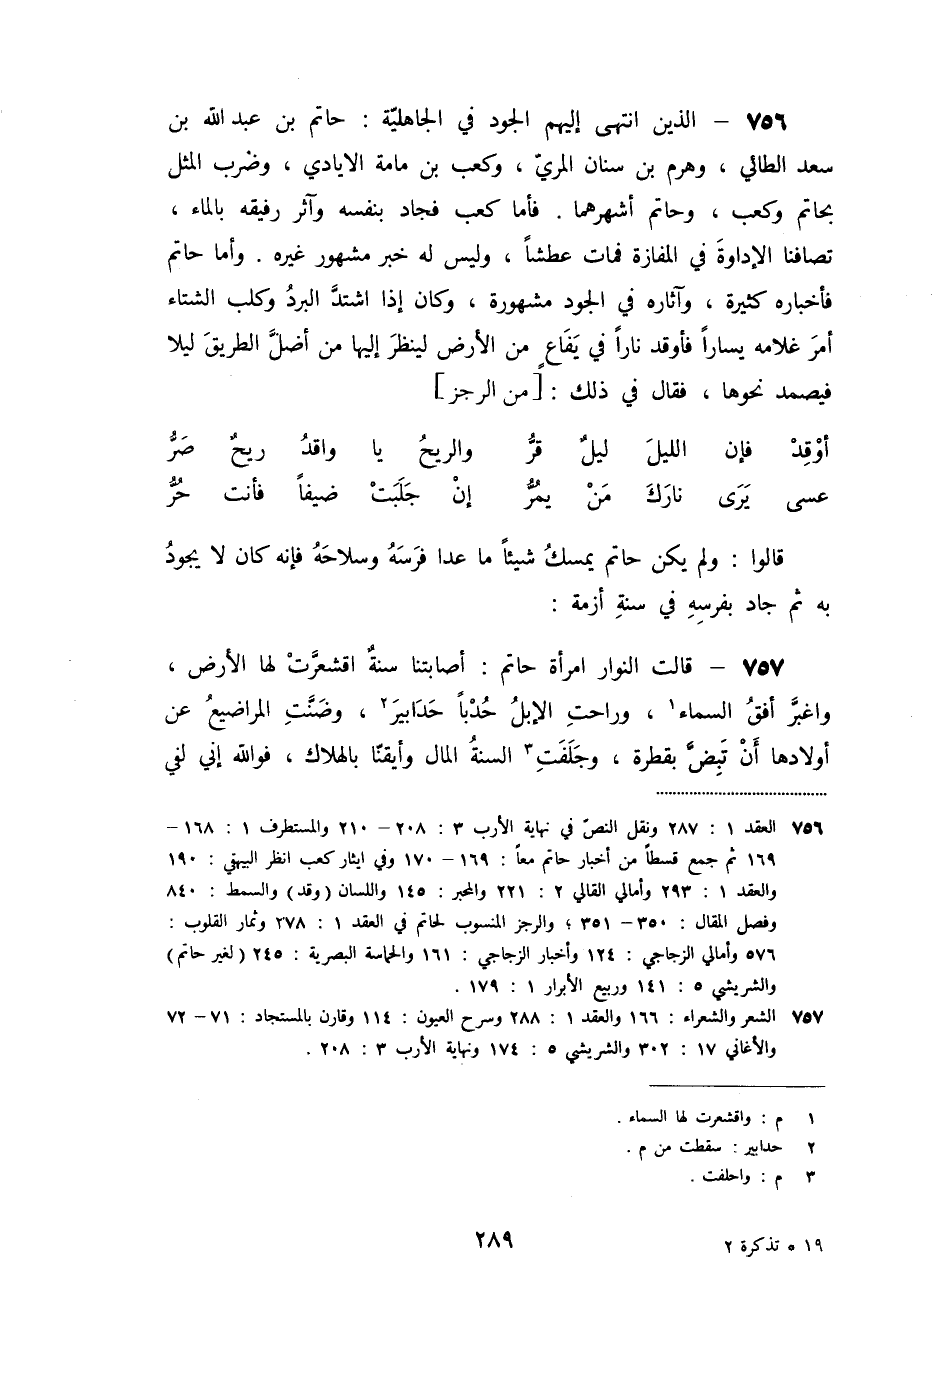 ٧٥٦ – الذين انتهى إليهم الجود في الجاهليّة : حاتم بن عبد الله بن
سعد الطائي ، وهرم بن سنان المريّ ، وكعب بن مامة الايادي ، وضُرب المثل
بحاتم وكعب ، وحاتم أشهرهما . فأما كعب فجاد بنفسه وآثر رفيقه بالماء ،
تصافنا الإداوةَ في المفازة فمات عطشاً ، وليس له خبر مشهور غيره . وأما حاتم
فأخباره كثيرة ، وآثاره في الجود مشهورة ، وكان إذا اشتدَّ البردُ وكلب الشتاء
أمرَ غلامه يساراً فأوقد ناراً في يَفَاعٍ من الأرض لينظرَ إليها من أضلَّ الطريقَ ليلا
فيصمد نحوها ، فقال في ذلك : [من الرجز]
أوْقِدْ فإن الليلَ ليلٌ قرُّ والريحُ يا واقدُ ريحٌ صَرُّ
عسى يَرَى نارَكَ مَنْ يمُرُّ إنْ جَلَبَتْ ضيفاً فأنت حُرُّ
قالوا : ولم يكن حاتم يمسكُ شيئاً ما عدا فرَسَهُ وسلاحَهُ فإنه كان لا يجودُ
به ثم جاد بفرسِهِ في سنةِ أزمة :
٧٥٧ – قالت النوار امرأة حاتم : أصابتنا سنةٌ اقشعرَّتْ لها الأرض ،
واغبرَّ أفقُ السماء١ ، وراحتِ الإبلُ حُدْباً حَدَابيرَ٢ ، وضَنَّتِ المراضيعُ عن
أولادها أَنْ تَبِضَّ بقطرة ، وجَلَفَتِ٣ السنةُ المال وأيقنّا بالهلاك ، فوالله إني لفي
٧٥٦ العقد ١ : ٢٨٧ ونقل النصّ في نهاية الأرب ٣ : ٢٠٨ – ٢١٠ والمستطرف ١ : ١٦٨ –
١٦٩ ثم جمع قسطاً من أخبار حاتم معاً : ١٦٩ – ١٧٠ وفي ايثار كعب انظر البيهقي : ١٩٠
والعقد ١ : ٢٩٣ وأمالي القالي ٢ : ٢٢١ والمحبر : ١٤٥ واللسان (وقد) والسمط : ٨٤٠
وفصل المقال : ٣٥٠ – ٣٥١ ؛ والرجز المنسوب لحاتم في العقد ١ : ٢٧٨ وثمار القلوب :
٥٧٦ وأمالي الزجاجي : ١٢٤ وأخبار الزجاجي : ١٦١ والحماسة البصرية : ٢٤٥ (لغير حاتم)
والشريشي ٥ : ١٤١ وربيع الأبرار ١ : ١٧٩ .
٧٥٧ الشعر والشعراء : ١٦٦ والعقد ١ : ٢٨٨ وسرح العيون : ١١٤ وقارن بالمستجاد : ٧١ – ٧٢
والأغاني ١٧ : ٣٠٢ والشريشي ٥ : ١٧٤ ونهاية الأرب ٣ : ٢٠٨ .
١ م : واقشعرت لها السماء .
٢ حدابير : سقطت من م .
٣ م : واحلفت .
٢٨٩
١٩ ٭ تذكرة ٢